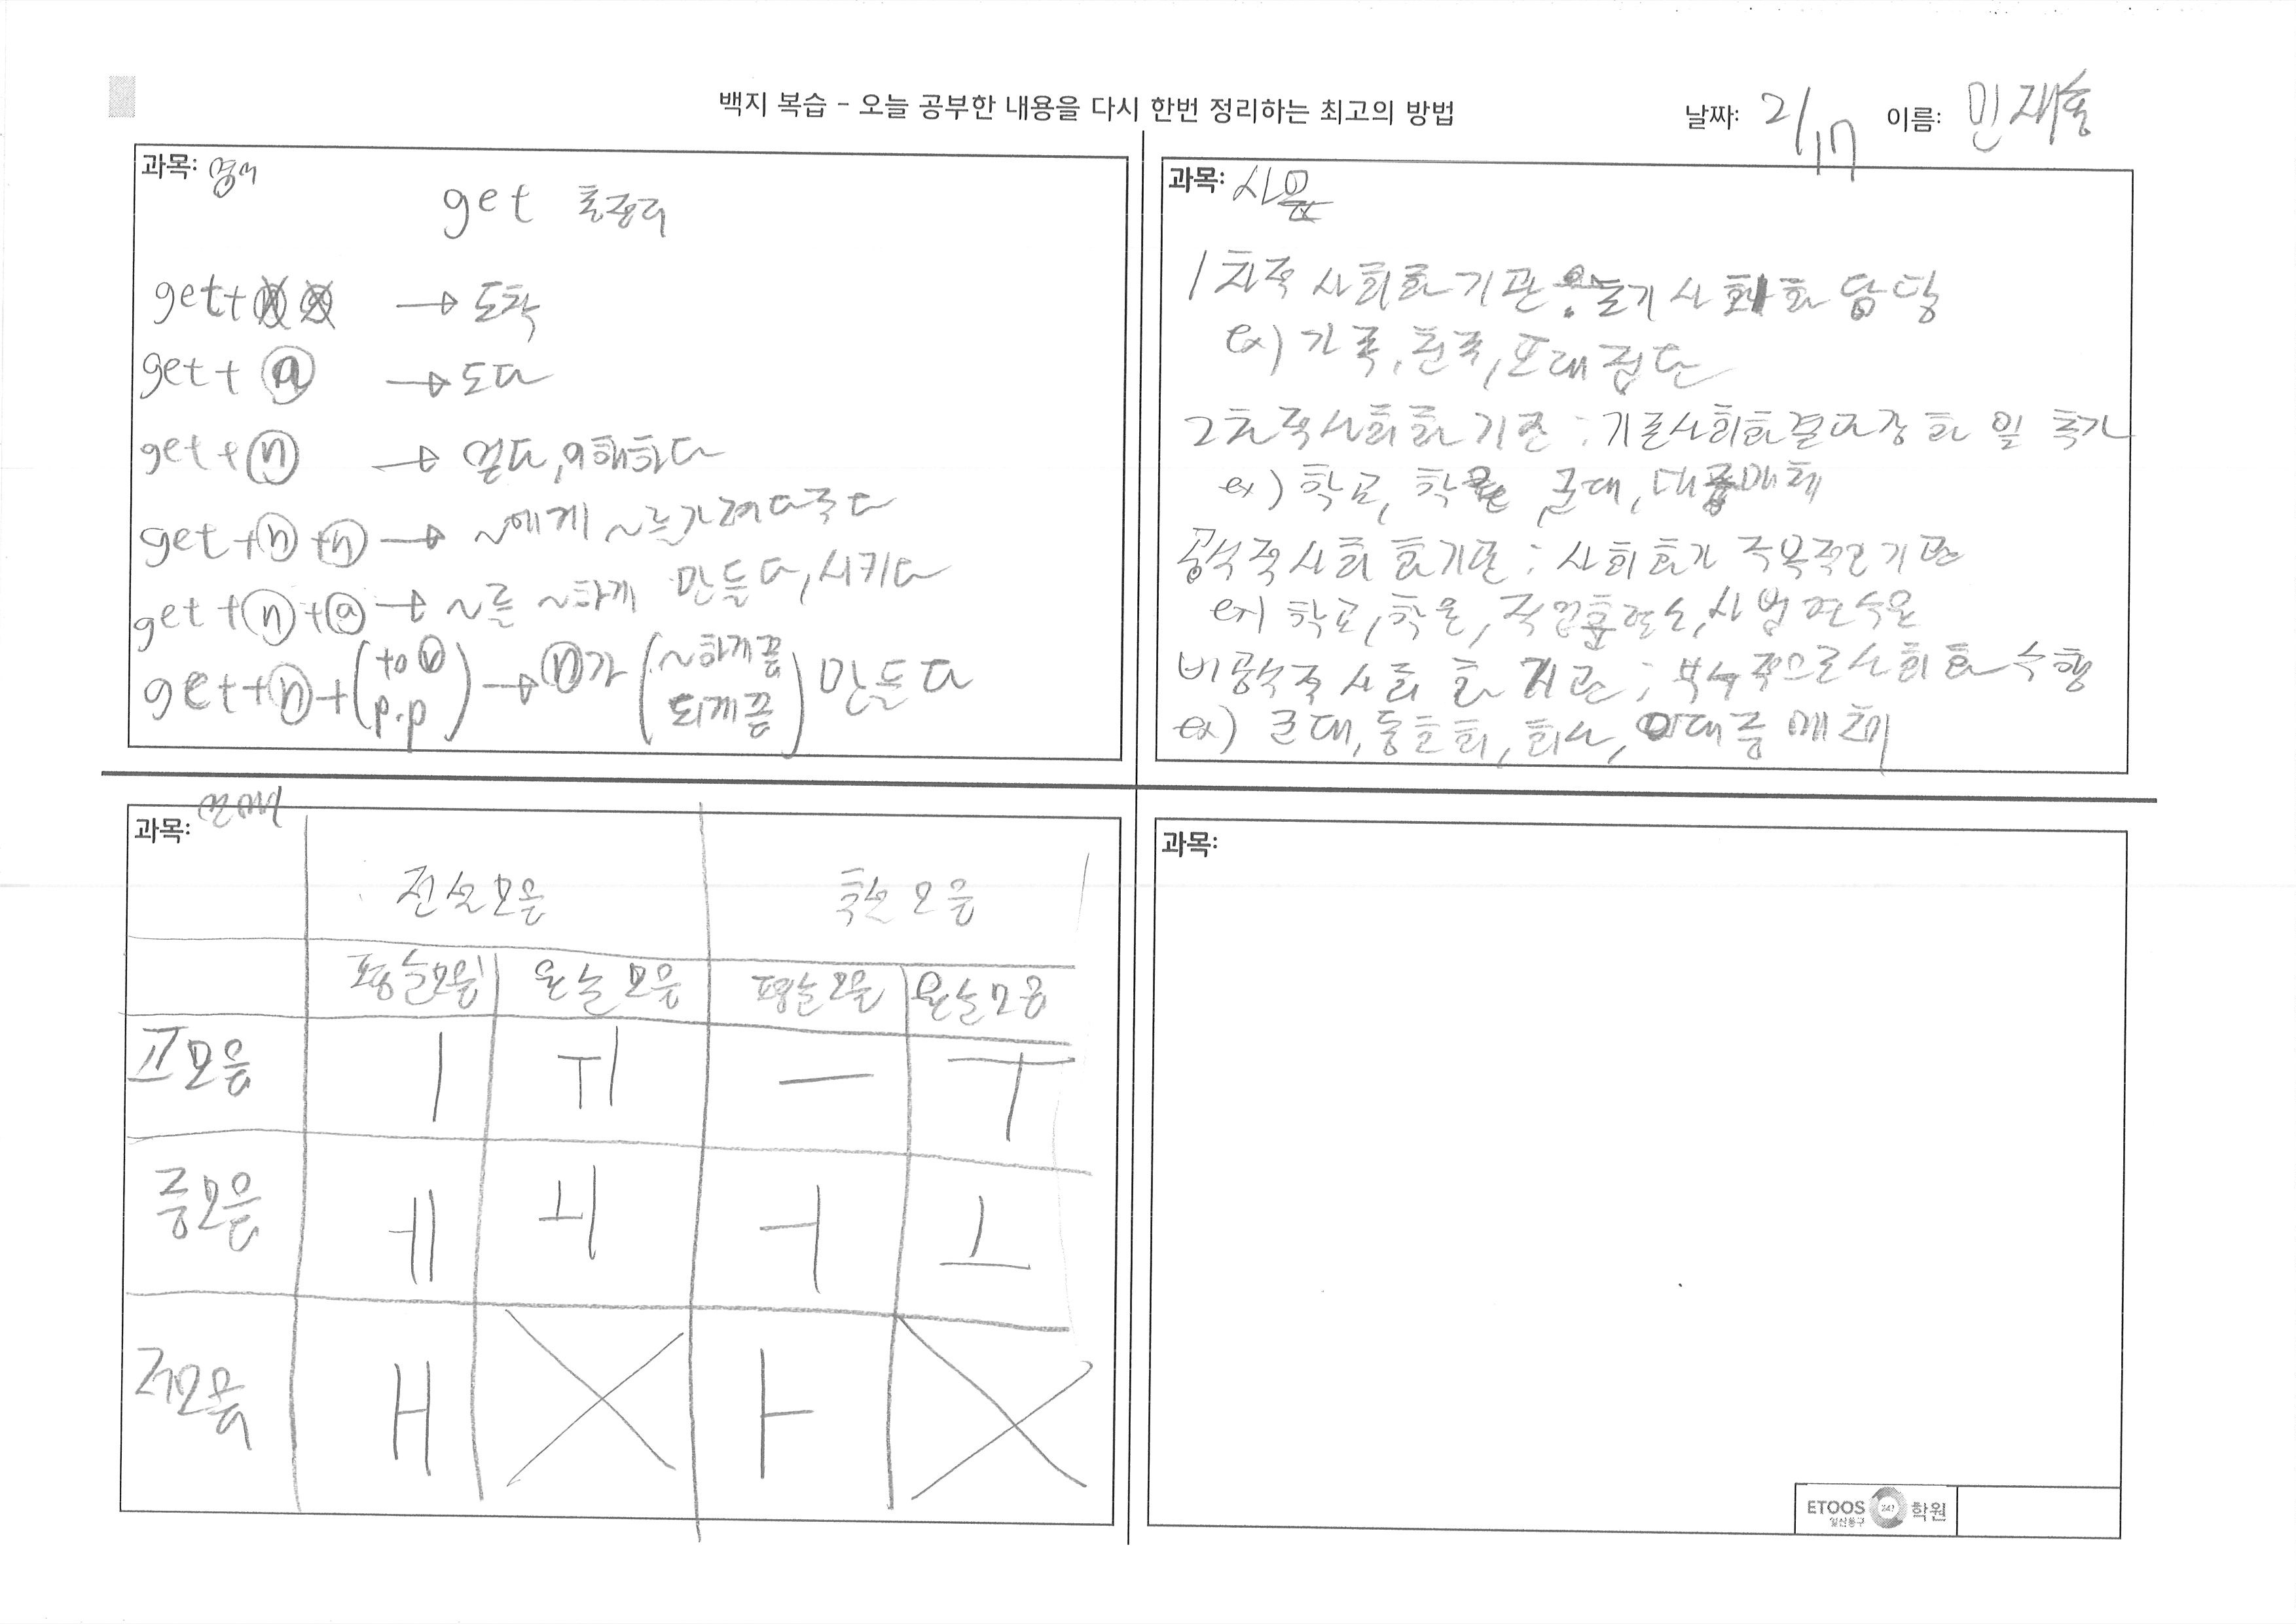 백지 복습 - 오늘 공부한 내용을 다시 한번 정리하는 최고의 방법
날짜: 2/17 이름: 민재홍
과목: 영어
get 총정리
get+ → 도착
get+ⓐ → 되다
get+ⓝ → 얻다, 이해하다
get+ⓝ+ⓝ → ~에게 ~를 가져다주다
get+ⓝ+ⓐ → ~를 ~하게 만들다, 시키다
get+ⓝ+(to ⓥ / p.p) → ⓝ가 (~하게끔 / 되게끔) 만든다
과목: 사문
1차적 사회화 기관 : 초기 사회화 담당
ex) 가족, 친족, 또래 집단
2차적 사회화 기관 : 기존사회화결과 강화 및 추가
ex) 학교, 학원, 군대, 대중매체
공식적 사회화기관 : 사회화가 주목적인 기관
ex) 학교, 학원, 직업훈련소, 사법연수원
비공식적 사회화 기관 : 부수적으로 사회화 수행
ex) 군대, 동호회, 회사, 대중매체
과목: 언매
전설모음 후설모음
평순모음 원순모음 평순모음 원순모음
고모음 ㅣ ㅟ ㅡ ㅜ
중모음 ㅔ ㅚ ㅓ ㅗ
저모음 ㅐ X ㅏ X
과목:
ETOOS 247 학원
일산동구